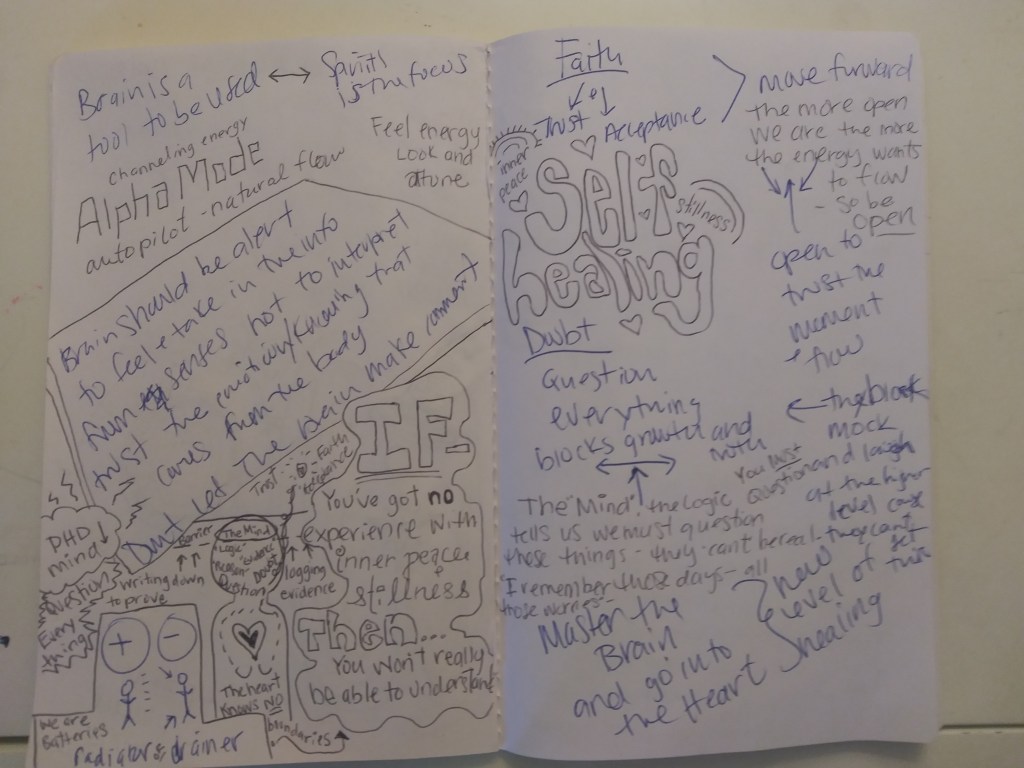 Brain is a
tool to be used
Spirit
is the focus
channeling energy
Alpha Mode
autopilot - natural flow
Feel energy
Look and
attune
Brain should be alert
to feel + take in the info
from senses not to interpret
trust the emotion/knowing that
comes from the body
Dont let the brain make comment
Trust
Faith
IF...
You've got no
experience with
inner peace
+
stillness
Then...
You won't really
be able to understand
PHD
mind
Question
Every
thing
barrier
writing down
to prove
The Mind
Logic
logging
evidence
+
-
We are
Batteries
radiator & drainer
The heart
Knows NO
boundaries
Faith
Trust
Acceptance
inner
peace
Self
healing
stillness
move forward
The more open
We are the more
the energy wants
to flow
- so be
open
open to
trust the
moment
+ flow
Doubt
Question
everything
blocks growth and
the block
mock
You must
Question and laugh
at the higher
level cause
they cant
get
The "Mind" the logic
tells us we must question
those things - they cant be real -
I remember those days - all
those words -
Master the
Brain
and go into
the Heart
new
level of
healing